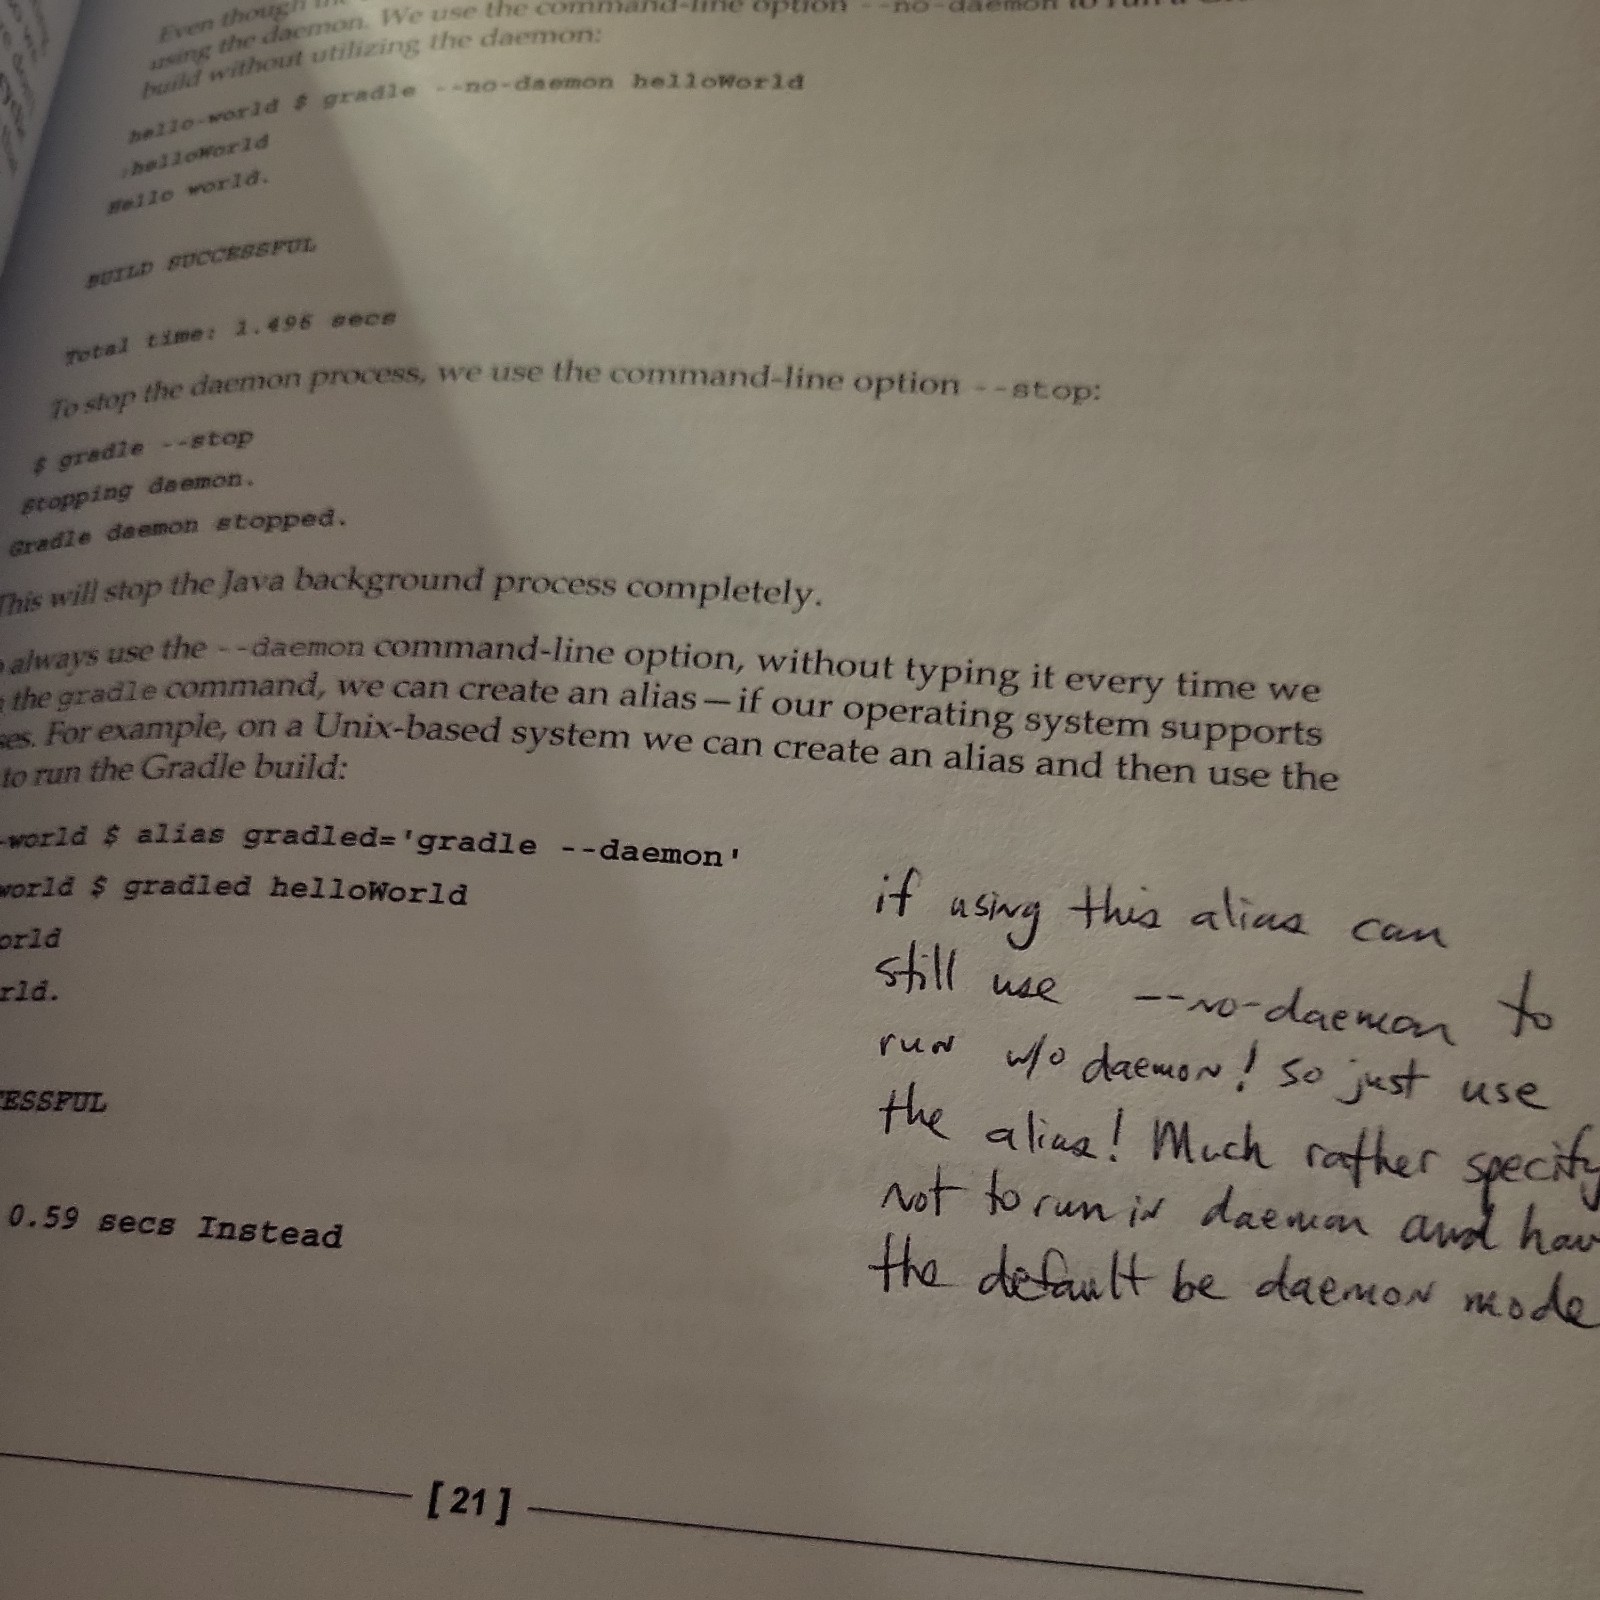 Even though
using the daemon. We use the command-line option --no-daemon to run a
build without utilizing the daemon:
hello-world $ gradle --no-daemon helloWorld
:helloWorld
Hello world.
BUILD SUCCESSFUL
Total time: 1.496 secs
To stop the daemon process, we use the command-line option --stop:
$ gradle --stop
Stopping daemon.
Gradle daemon stopped.
This will stop the Java background process completely.
always use the --daemon command-line option, without typing it every time we
the gradle command, we can create an alias—if our operating system supports
ses. For example, on a Unix-based system we can create an alias and then use the
to run the Gradle build:
-world $ alias gradled='gradle --daemon'
world $ gradled helloWorld
orld
rld.
ESSFUL
0.59 secs Instead
if using this alias can
still use --no-daemon to
run w/o daemon! So just use
the alias! Much rather specify
not to run in daemon and hav
the default be daemon mode
[21]